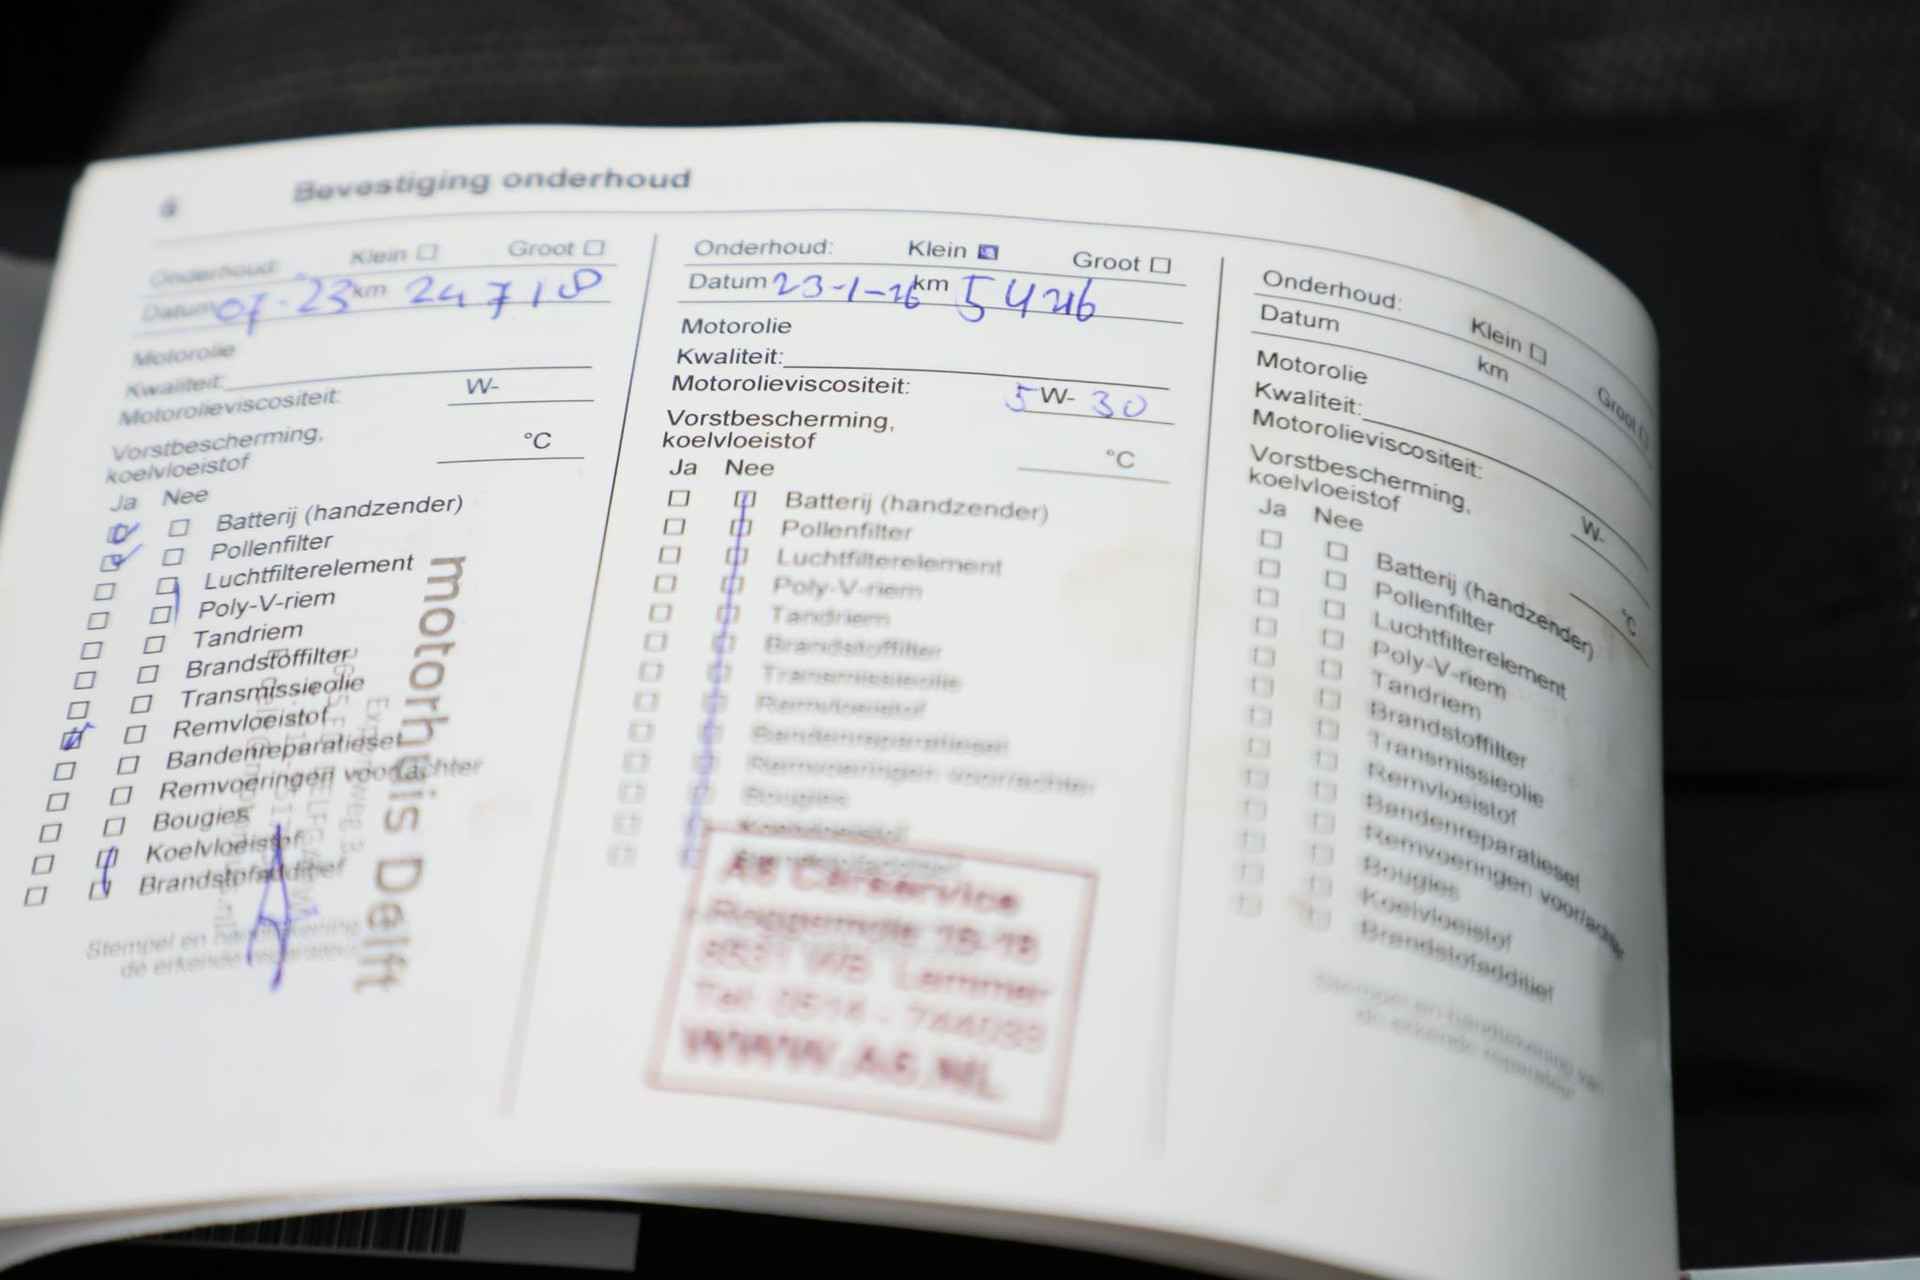 6 Bevestiging onderhoud
Onderhoud: Klein Groot
Datum 07-23 km 24718
Motorolie
Kwaliteit:
Motorolieviscositeit: W-
Vorstbescherming,
koelvloeistof °C
Ja Nee
Batterij (handzender)
Pollenfilter
Luchtfilterelement
Poly-V-riem
Tandriem
Brandstoffilter
Transmissieolie
Remvloeistof
Bandenreparatieset
Remvoeringen voor/achter
Bougies
Koelvloeistof
Brandstofadditief
Stempel en handtekening
de erkende reparateur
motorhuis Delft
Onderhoud: Klein Groot
Datum 23-1-26 km 5426
Motorolie
Kwaliteit:
Motorolieviscositeit: 5W-30
Vorstbescherming,
koelvloeistof °C
Ja Nee
Batterij (handzender)
Pollenfilter
Luchtfilterelement
Poly-V-riem
Tandriem
Brandstoffilter
Transmissieolie
Remvloeistof
Bandenreparatieset
Remvoeringen voor/achter
Bougies
Koelvloeistof
Brandstofadditief
A6 Carservice
8531 WB Lemmer
Tel: 0514 - 744033
WWW.A6.NL
Onderhoud: Klein Groot
Datum km
Motorolie
Kwaliteit:
Motorolieviscositeit: W-
Vorstbescherming,
koelvloeistof °C
Ja Nee
Batterij (handzender)
Pollenfilter
Luchtfilterelement
Poly-V-riem
Tandriem
Brandstoffilter
Transmissieolie
Remvloeistof
Bandenreparatieset
Remvoeringen voor/achter
Bougies
Koelvloeistof
Brandstofadditief
Stempel en handtekening van
de erkende reparateur